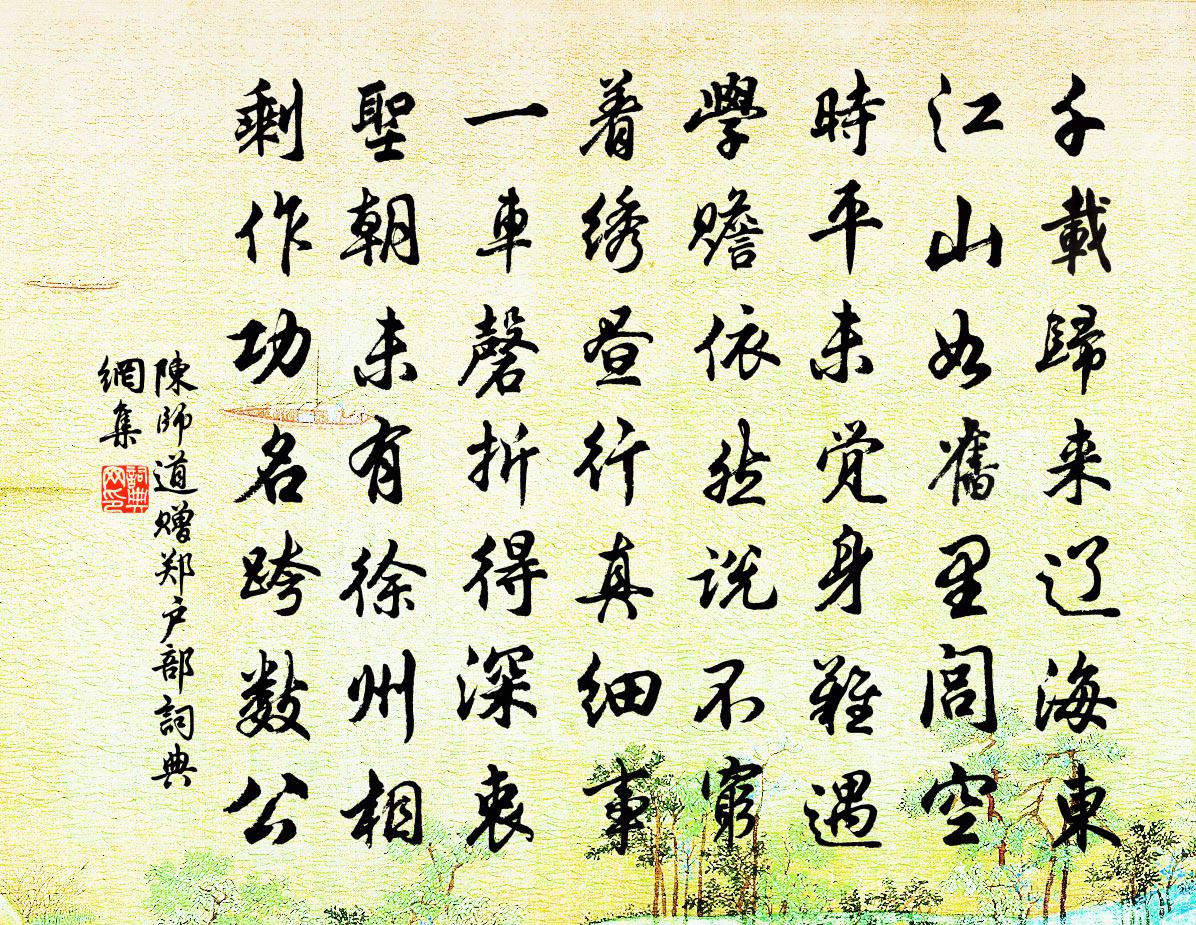 千載歸来辽海東
江山如舊里閭空
時平未觉身難遇
學赡依然说不窮
着绣昼行真细事
一車磬折得深衷
聖朝未有徐州相
剩作功名跨數公
陳師道赠郑户部詞典
網集
詞典
网印